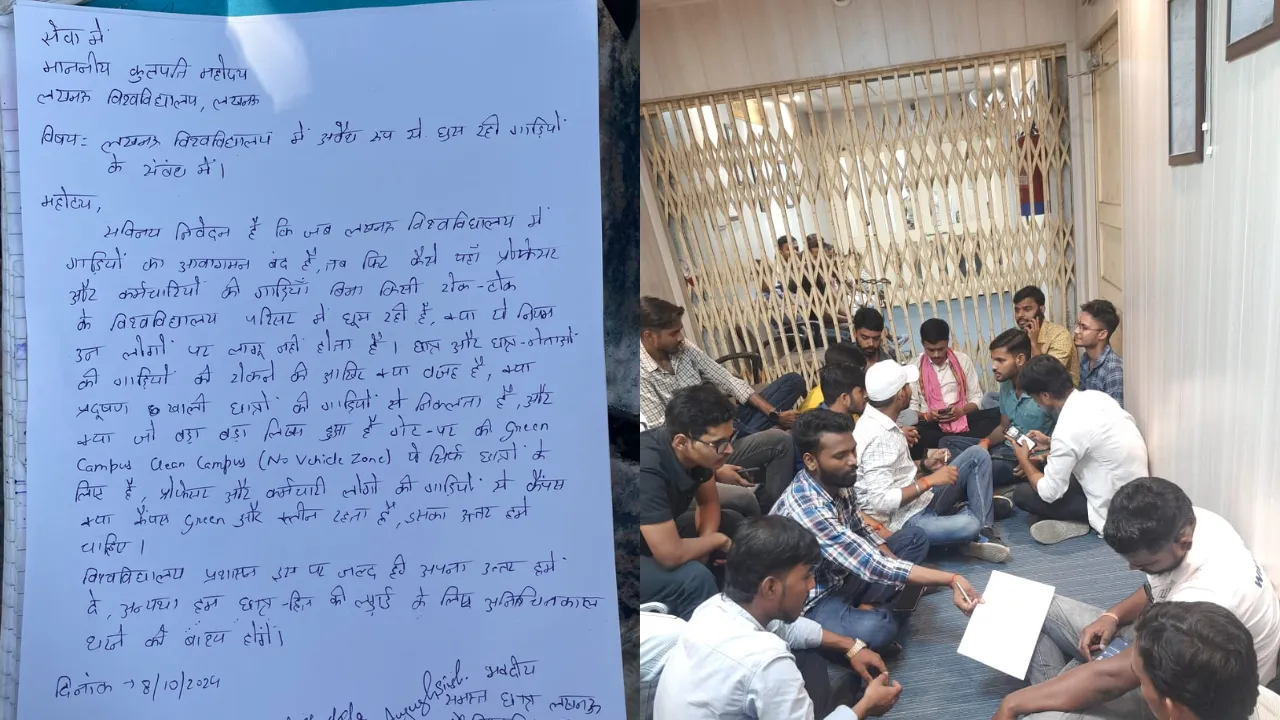 सेवा में
माननीय कुलपति महोदय
लखनऊ विश्वविद्यालय, लखनऊ
विषय:- लखनऊ विश्वविद्यालय में अवैध रूप से घुस रही गाड़ियों
के संबंध में।
महोदय,
सविनय निवेदन है कि जब लखनऊ विश्वविद्यालय में
गाड़ियों का आवागमन बंद है, तब फिर कैसे यहाँ प्रोफेसर
और कर्मचारियों की गाड़ियाँ बिना किसी रोक-टोक
के विश्वविद्यालय परिसर में घूस रही है, क्या ये नियम
उन लोगो पर लागू नहीं होता है। छात्र और छात्र-नेताओं
की गाड़ियों को रोकने की आखिर क्या वजह है, क्या
प्रदूषण खाली छात्रों की गाड़ियों से निकलता है, और
क्या जो बड़ा बड़ा लिखा हुआ है गेट-पर की Green
Campus Clean Campus (No Vehicle Zone) ये सिर्फ छात्रों के
लिए है, प्रोफेसर और कर्मचारी लोगों की गाड़ियों से कैंपस
क्या कैंपस Green और क्लीन रहता है, इसका उत्तर हमे
चाहिए।
विश्वविद्यालय प्रशासन इस पर जल्द ही अपना उत्तर हमें
दे, अन्यथा हम छात्र-हित की लड़ाई के लिए अनिश्चितकालीन
धरने को बाध्य होंगे।
दिनांक → 8/10/2024
भवदीय
समस्त छात्र लखनऊ